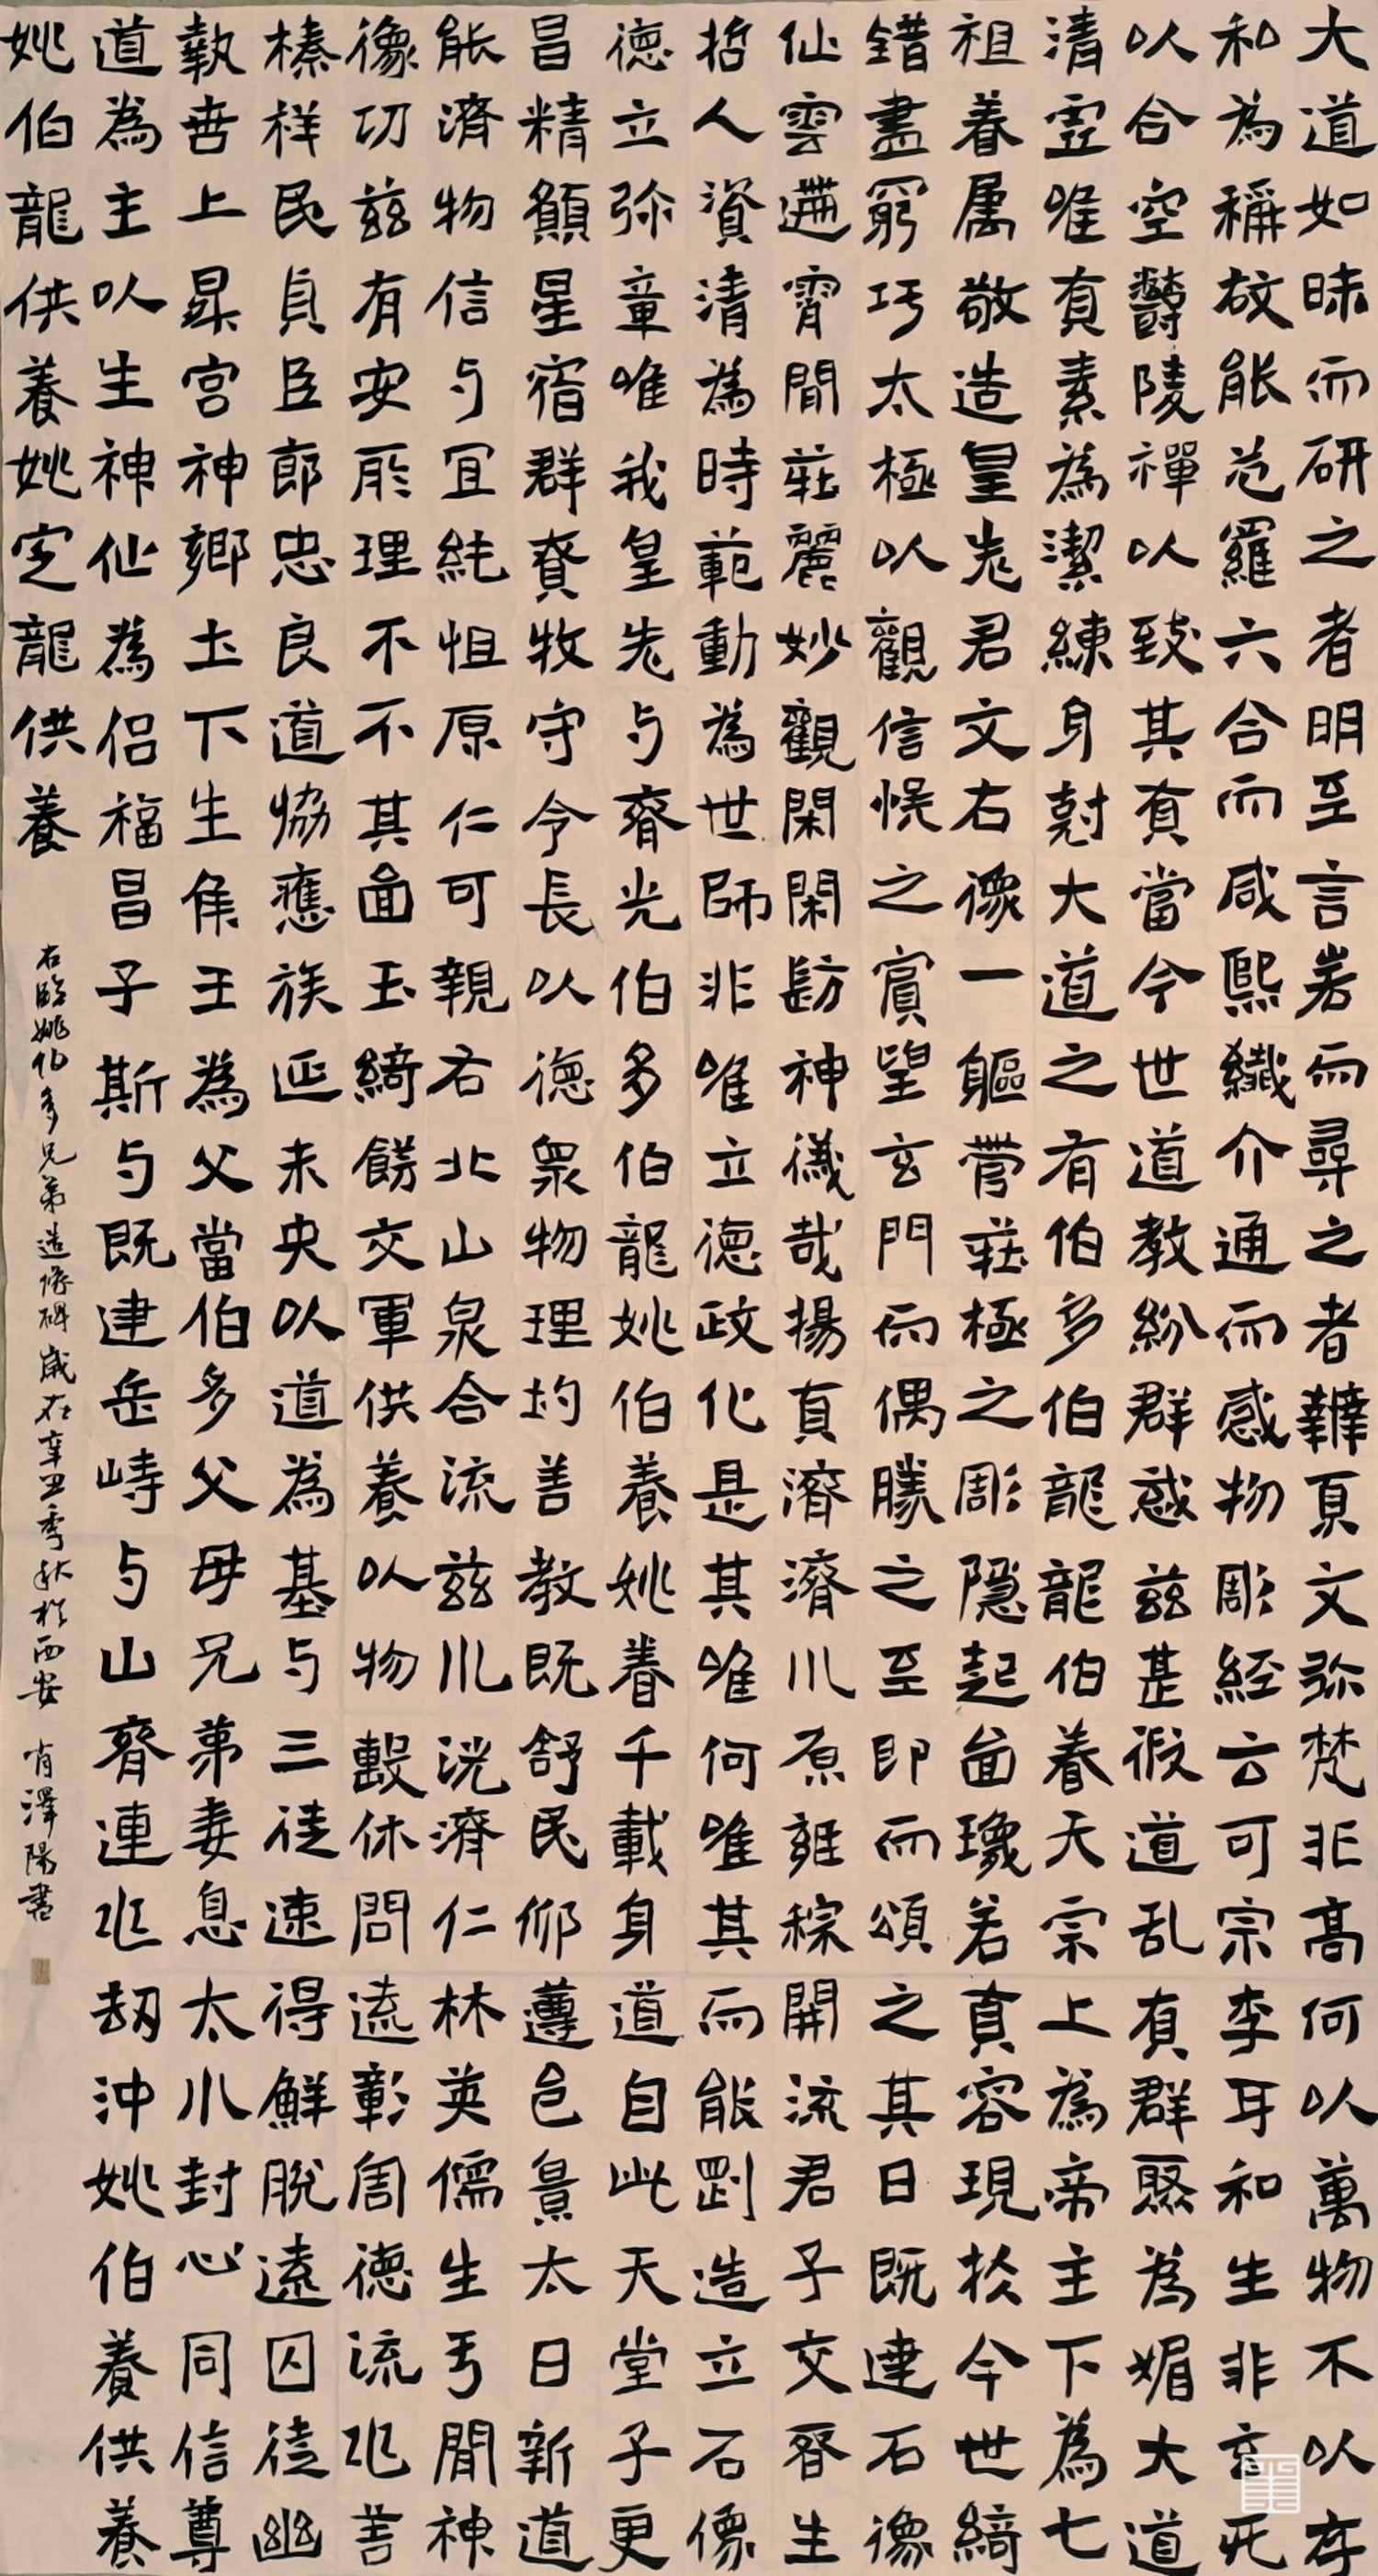 大道如昧而研之者明至言若而尋之者韡頁文弥梵非高何以萬物不以存
和為稱故能苞羅六合而咸熙纖介通而感物彫經云可宗李耳和生非玄死
以合空欝陵禪以致其真當今世道教紛群惑兹甚假道乱真群聚為媚大道
清虚唯真素為潔練身尅大道之有伯多伯龍龍伯春天宗上為帝主下為七
祖眷属敬造皇先君文右像一軀營莊極之彫隱起面瓌若真容現於今世綺
錯盡窮巧太極以觀信恍之賓望玄門而偶勝之至即而頌之其日既建石像
仙雲遊霄閒莊麗妙觀閑閑髣神儀哉揚真濟濟川原雍穆開流君子交昏生
哲人資清為時範動為世師非唯立德政化是其唯何唯其而能剛造立石像
德立弥章唯我皇先与齊光伯多伯龍姚伯養姚眷千載身道自此天堂子更
昌精顏星宿群賁牧守令長以德衆物理均善教既舒民邠遵邑景太日新道
能濟物信与宜純怛原仁可親右北山泉合流兹川洸濟仁林英儒生于聞神
像切兹有安所理不不其面玉綺餝交軍供養以物毄休問遠彰周德流北善
榛祥民貞臣郎忠良道恊應族延未央以道為基与三徒速得鮮脫遠囚徒幽
執苦上昇宮神鄉土下生侯王為父當伯多父母兄弟妻息太小封心同信尊
道為主以生神仙為侶福昌子斯与既建岳峙与山齊連兆劫沖姚伯養供養
姚伯龍供養姚定龍供養
右臨姚伯多兄弟造像碑歲在辛丑季秋於西安 肖澤陽書